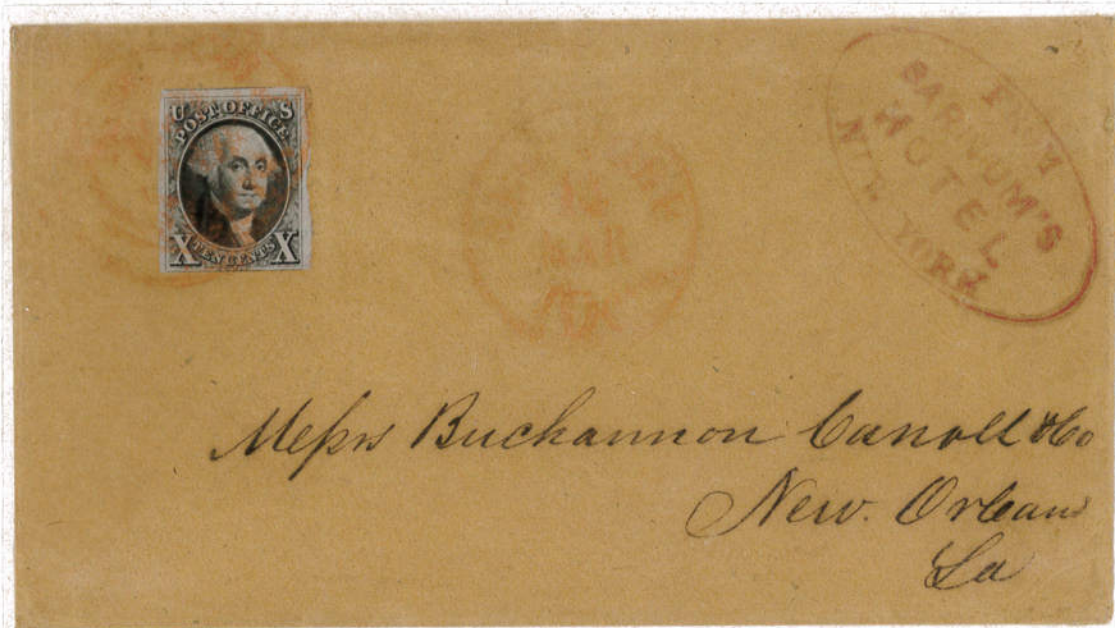 U S
POST OFFICE
X TEN CENTS X
MAR
FROM
BARNUM'S
HOTEL
YORK
Messrs Buchannon Carroll & Co
New. Orleans
La